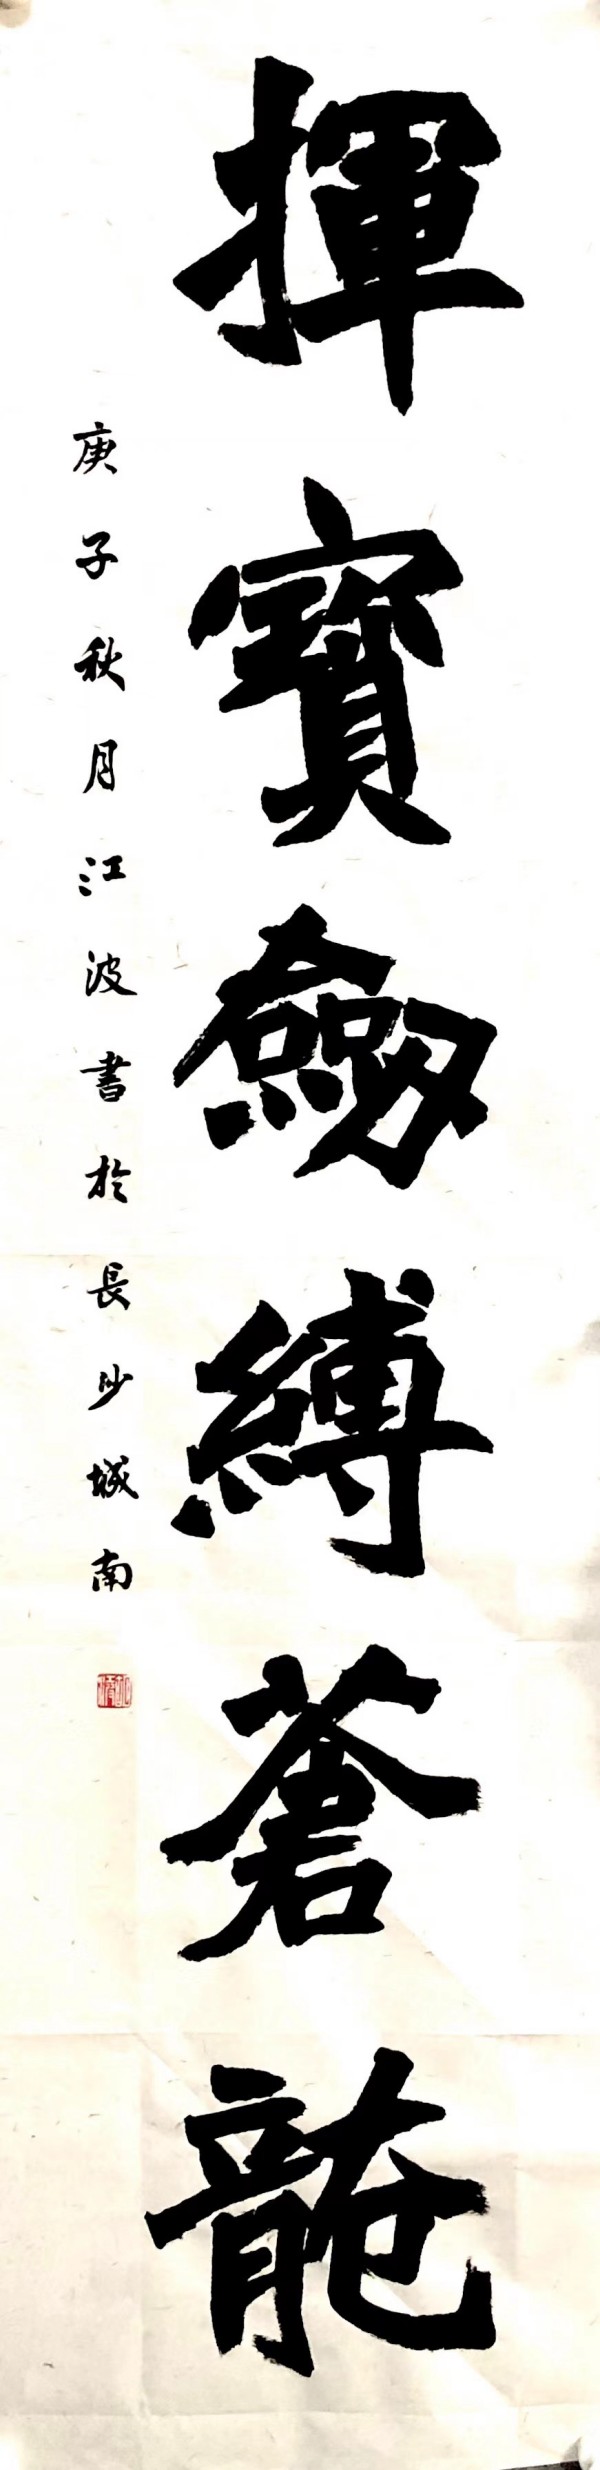 揮寶劒縛蒼龍
庚子秋月江波書於長沙城南